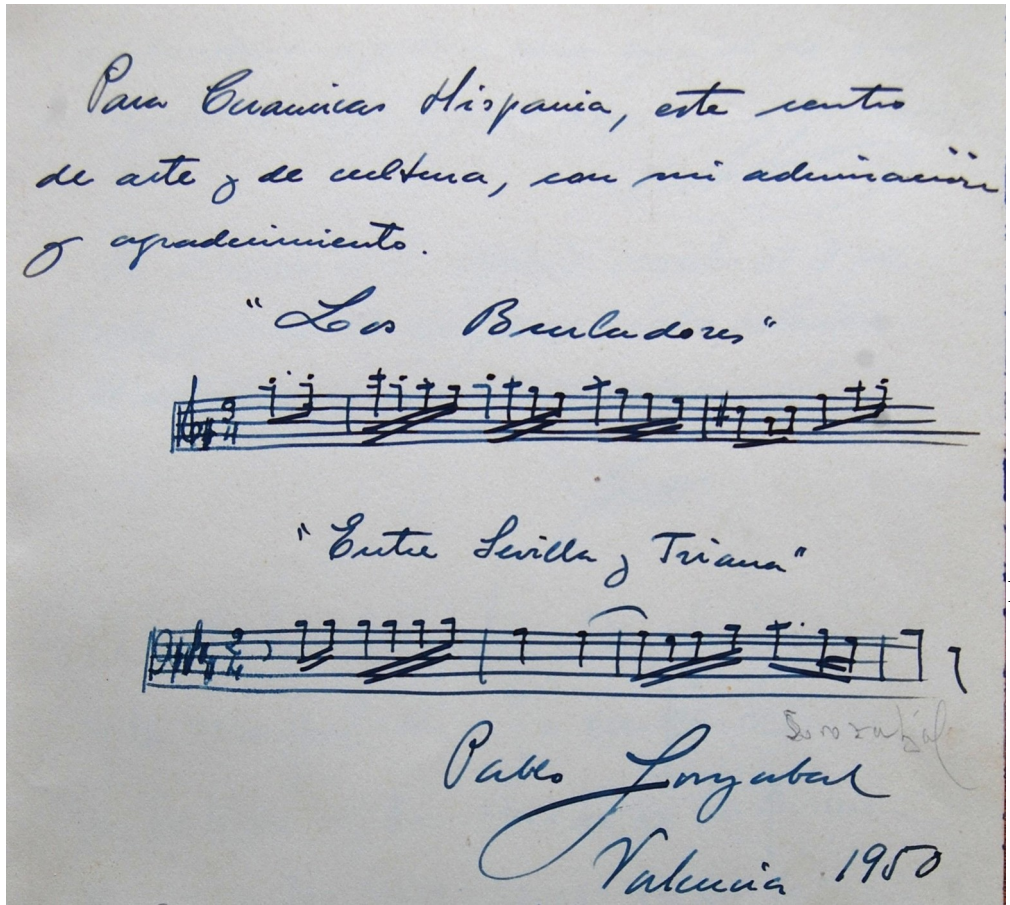 Para Ceramicas Hispania, este centro
de arte y de cultura, con mi admiración
y agradecimiento.
"Los Burladores"
3
4
"Entre Sevilla y Triana"
2
4
Sorozabal
Pablo Sorozabal
Valencia 1950